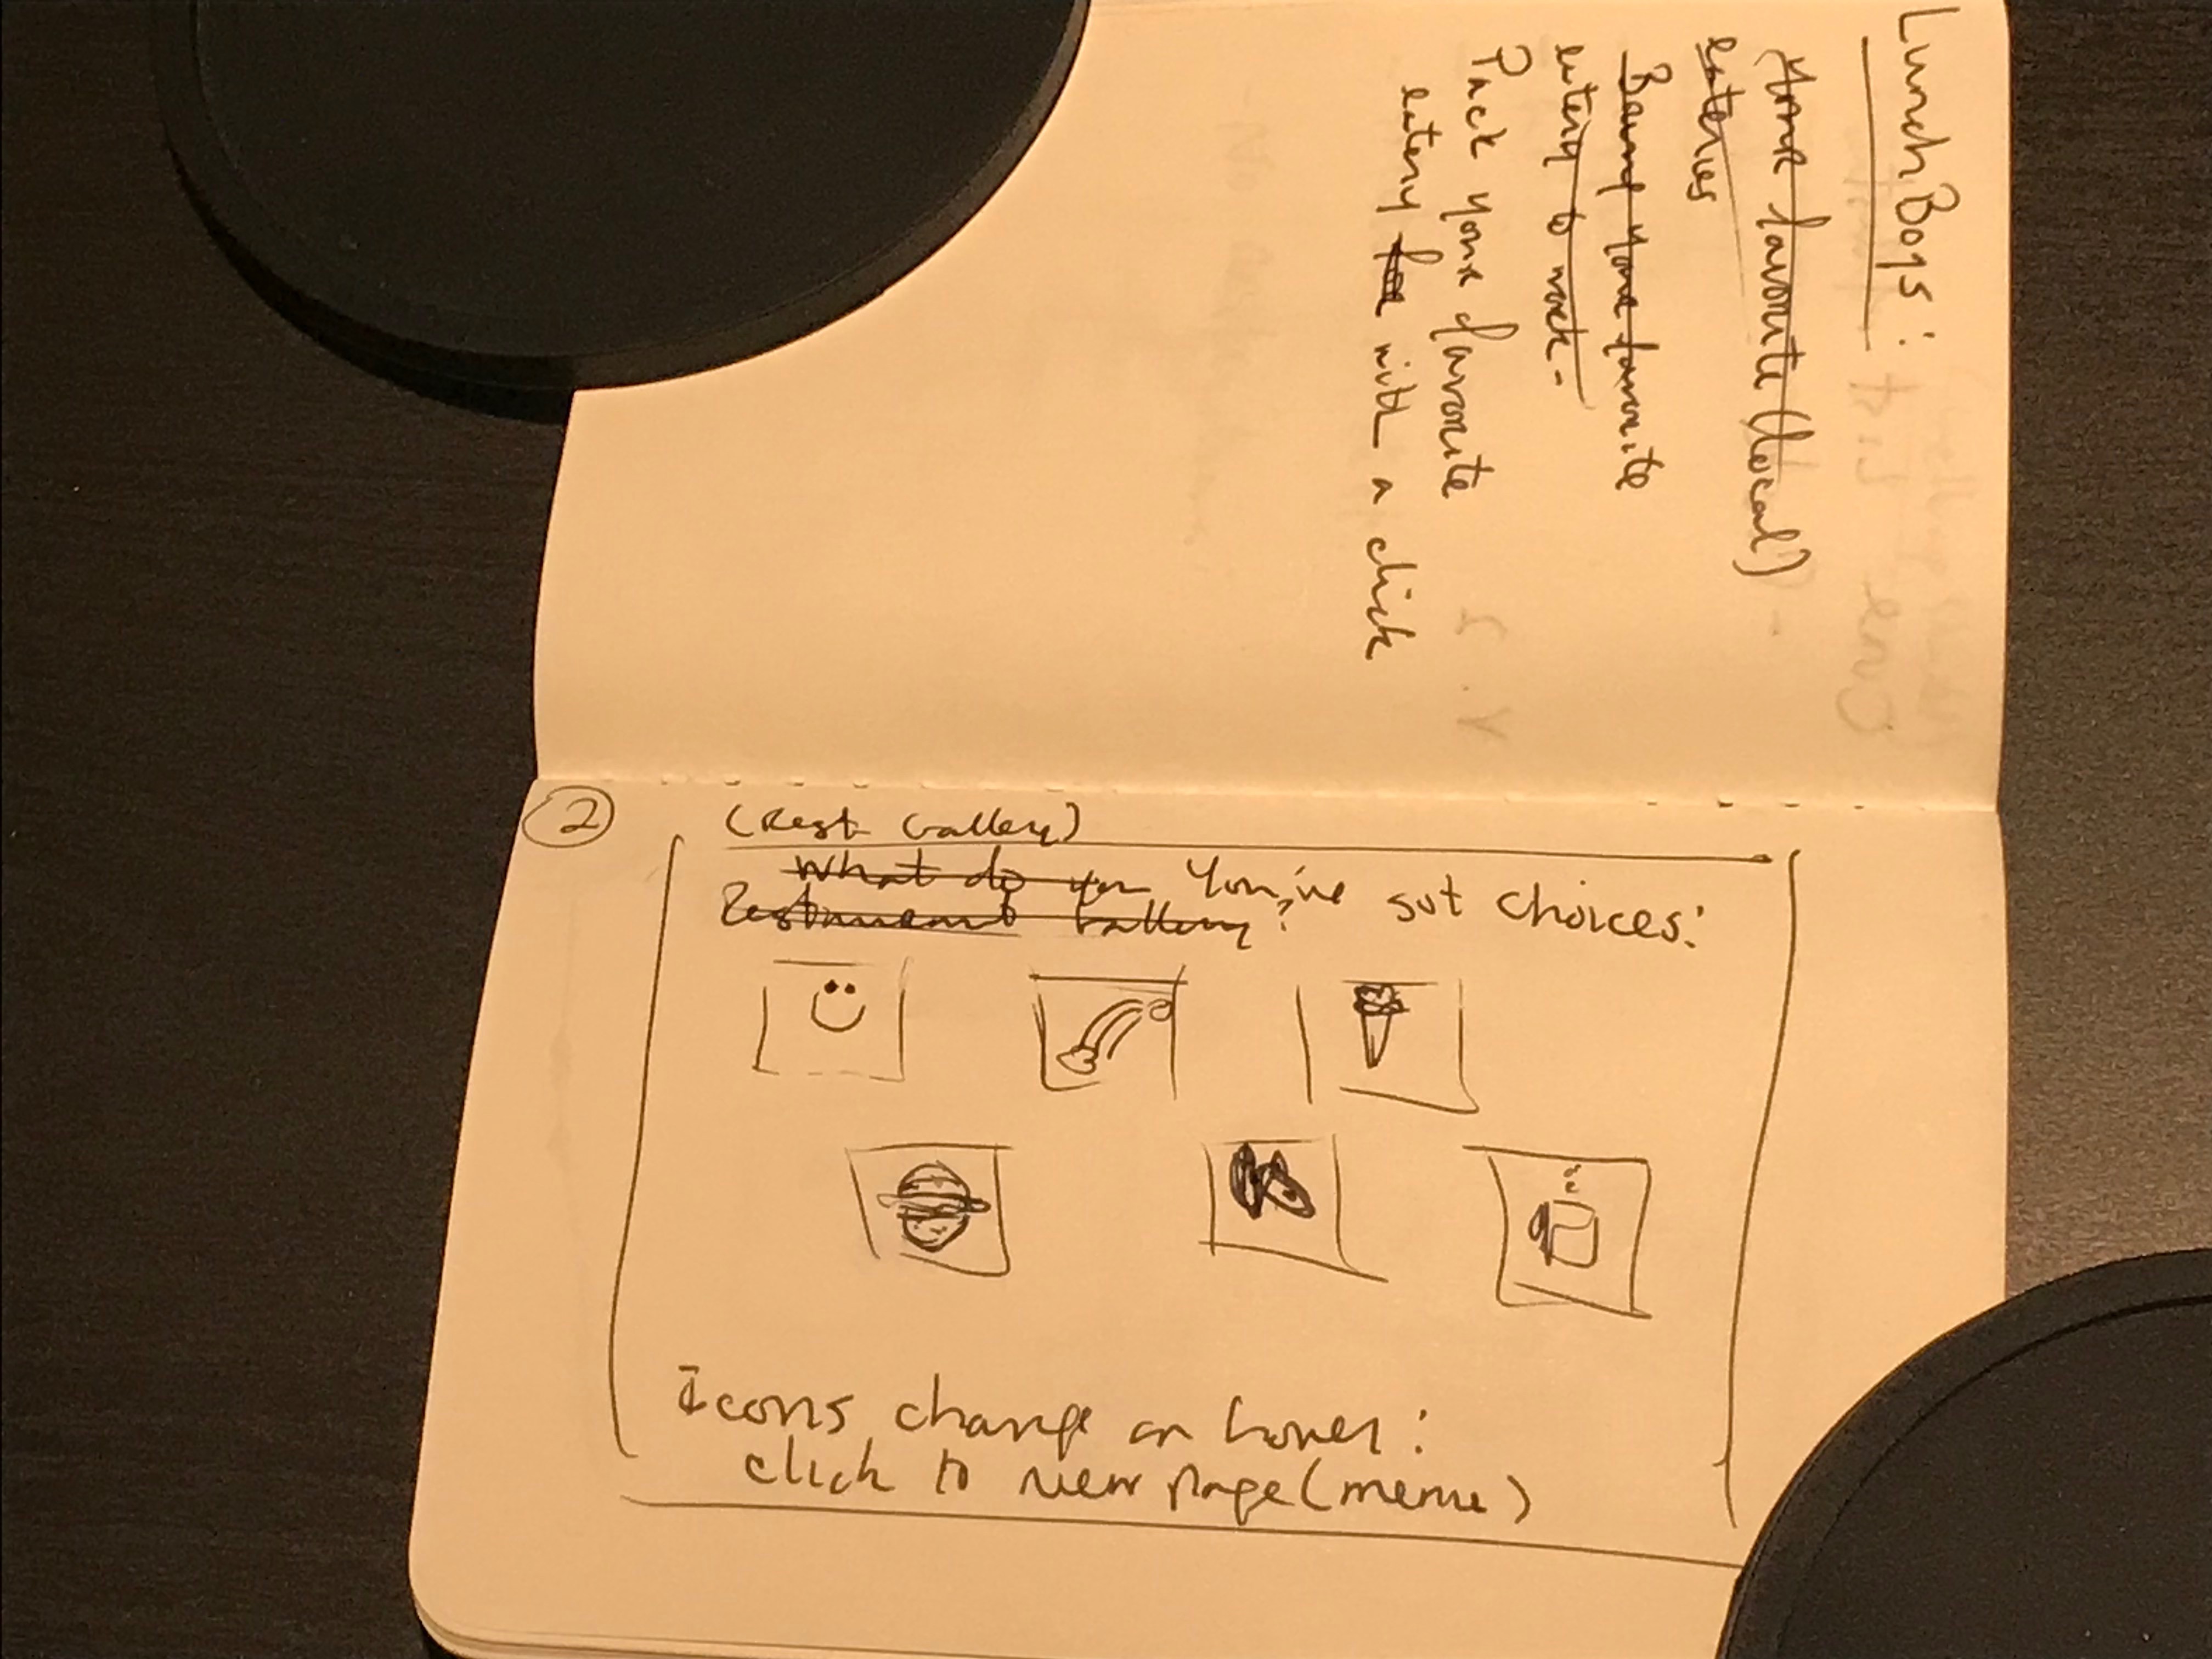 LunchBoys:
Your favorite (local)
eateries
Bring your favorite
eatery to work-
Pack your favorite
eatery for with a click
2
(Rest Gallery)
What do you You've got choices:
Restaurant Gallery?
Icons change on hover:
click to new page (menu)